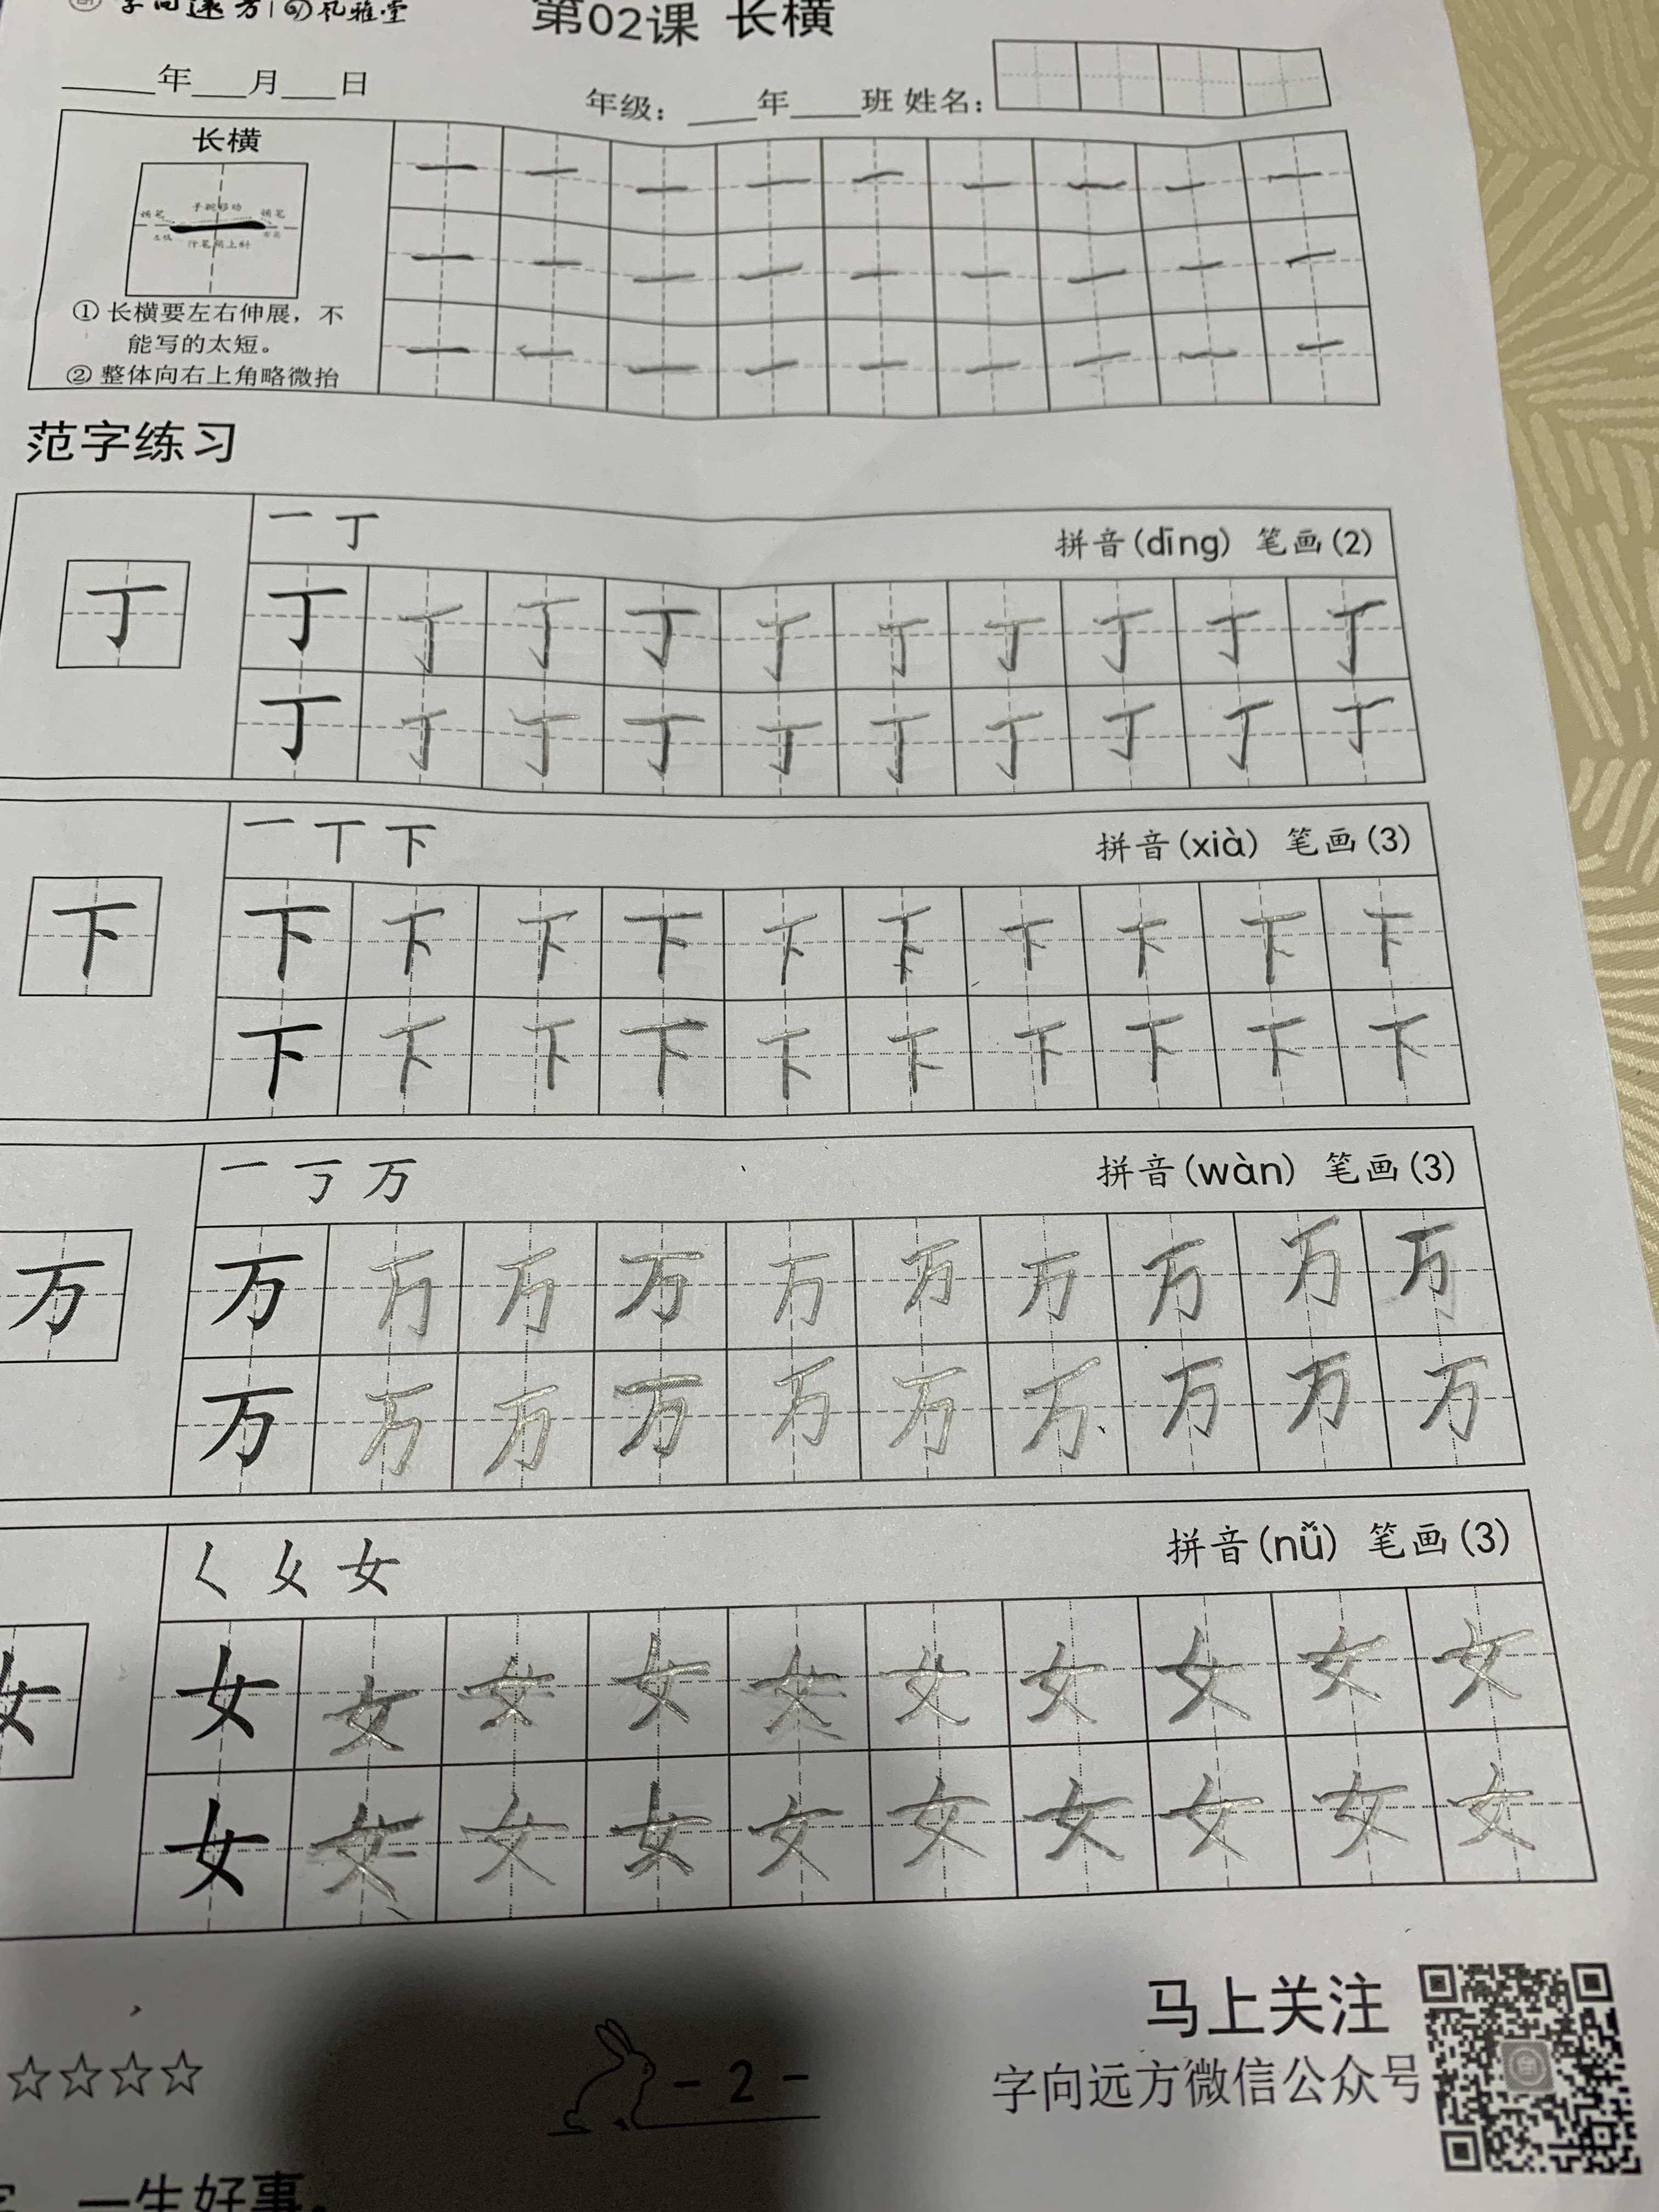 字向远方 风雅堂
第02课 长横
____年___月___日
年级：____年____班 姓名：
长横
顿笔 手腕移动 顿笔
左低 行笔稍上斜 右高
① 长横要左右伸展，不
能写的太短。
② 整体向右上角略微抬
一 一 一 一 一 一 一 一 一
一 一 一 一 一 一 一 一 一
一 一 一 一 一 一 一 一 一
范字练习
一 丁 拼音(dīng) 笔画(2)
丁 丁 丁 丁 丁 丁 丁 丁 丁 丁 丁
丁 丁 丁 丁 丁 丁 丁 丁 丁 丁
一 丅 下 拼音(xià) 笔画(3)
下 下 下 下 下 下 下 下 下 下 下
下 下 下 下 下 下 下 下 下 下
一 丂 万 拼音(wàn) 笔画(3)
万 万 万 万 万 万 万 万 万 万 万
万 万 万 万 万 万 万 万 万 万
女 拼音(nǚ) 笔画(3)
女 女 女 女 女 女 女 女 女 女 女
女 女 女 女 女 女 女 女 女 女
马上关注
字向远方微信公众号
☆☆☆☆
- 2 -
一生好事。